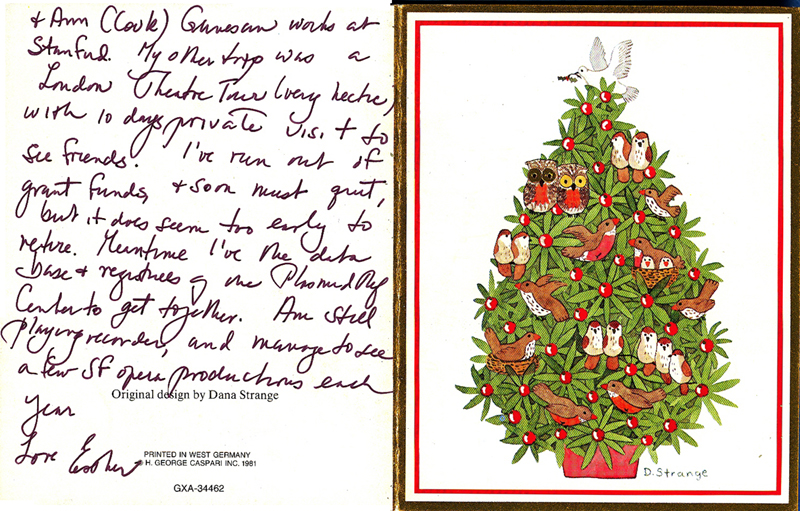 & Ann (Cook) Ganesan works at
Stanford. My other trip was a
London Theatre Tour (very hectic)
with 10 days private visit to
see friends. I've run out of
grant funds, & soon must quit,
but it does seem too early to
retire. Meantime I've the data
base & registries of the Plasmid Ref
Center to get together. Am still
playing recorder, and manage to see
a few SF opera productions each
year
Original design by Dana Strange
Love Esther
PRINTED IN WEST GERMANY
© H. GEORGE CASPARI INC. 1981
GXA-34462
D. Strange